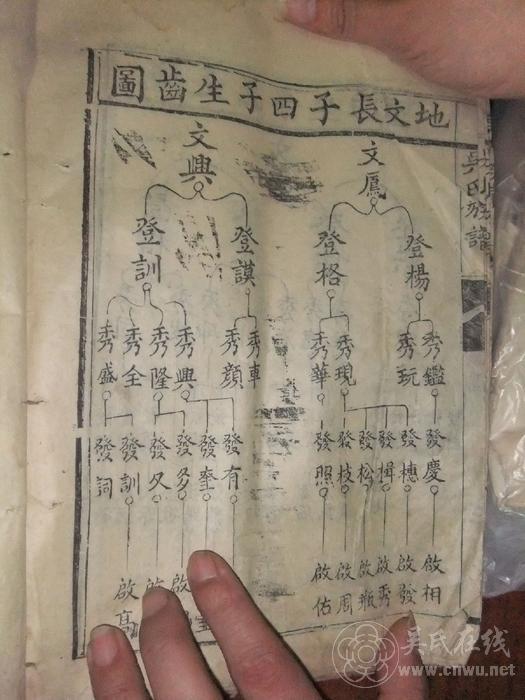 地文長子四子生齒圖
吳氏族譜
文鳳 文興
登楊 登格 登謨 登訓
秀鑑 秀玩 秀現 秀華 秀車 秀顏 秀興 秀隆 秀全 秀盛
發慶 發橞 發楫 發松 發枝 發照 發有 發奎 發多 發久 發訓 發詞
啟相 啟發 啟秀 啟瓶 啟周 啟佑 啟 啟 啟高
吳氏在线
www.cnwu.net